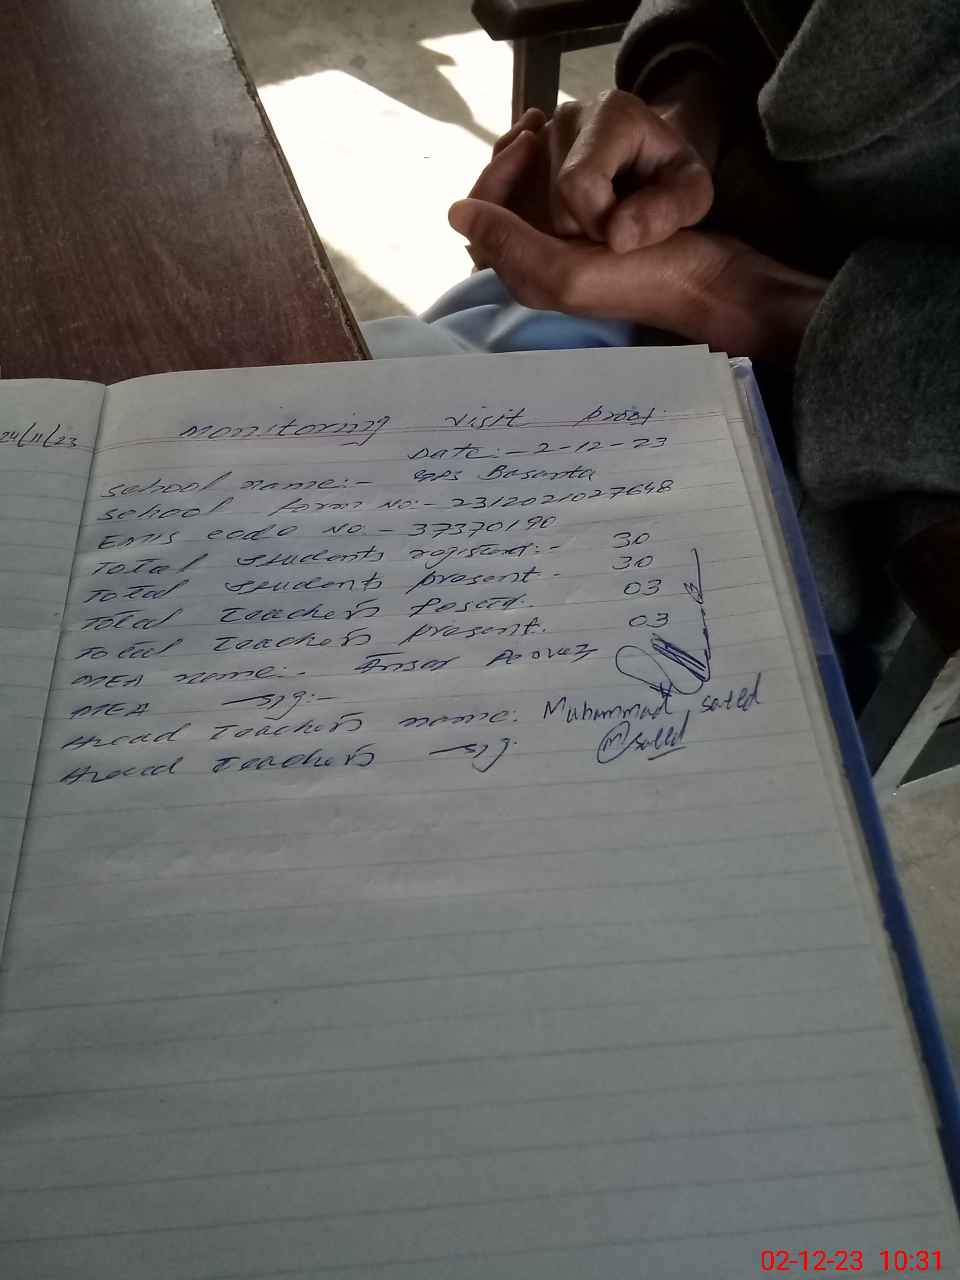 24/11/23
Monitoring visit proof.
Date:- 2-12-23
School name:- GPS Basanta
School form No:- 2312021027648
EMIS code No - 37370190
Total students registerd:- 30
Total students present - 30
Total Teachers Posted. 03
Total Teachers present. 03
MEA name:- Ansar Pervez
MEA sig:-
Head Teachers name: Muhammad saeed
Head Teachers sig. M saeed
02-12-23 10:31